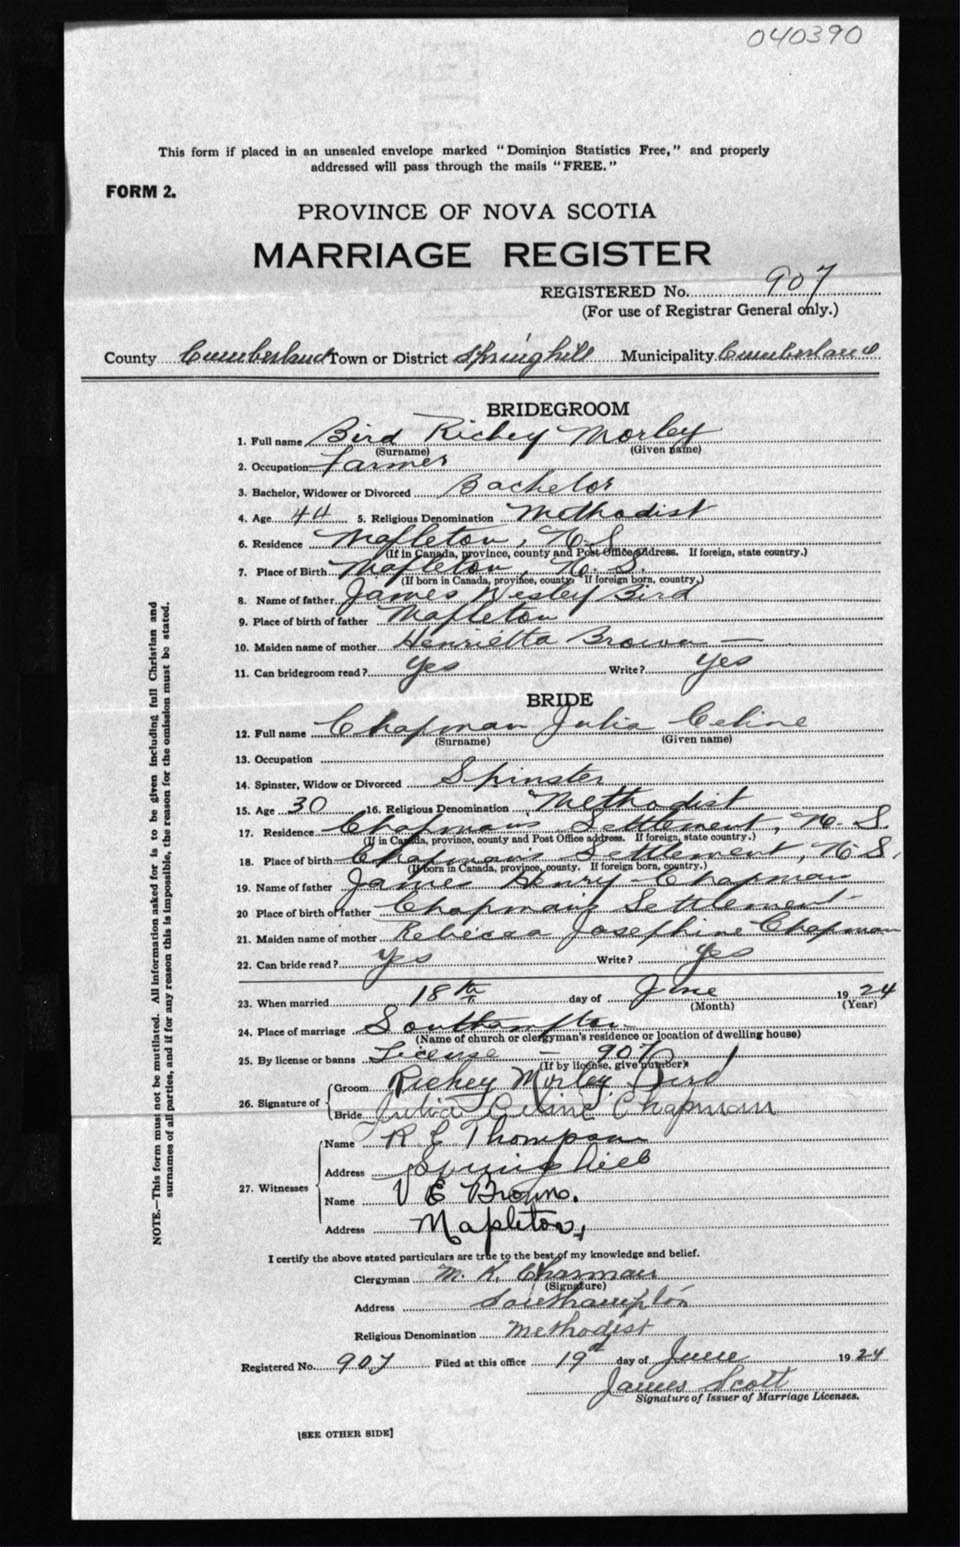 040390
This form if placed in an unsealed envelope marked "Dominion Statistics Free," and properly
addressed will pass through the mails "FREE."
FORM 2.
PROVINCE OF NOVA SCOTIA
MARRIAGE REGISTER
REGISTERED No. 907
(For use of Registrar General only.)
County Cumberland Town or District Springhill Municipality Cumberland
BRIDEGROOM
1. Full name Bird Richey Morley
(Surname) (Given name)
2. Occupation Farmer
3. Bachelor, Widower or Divorced Bachelor
4. Age 44 5. Religious Denomination Methodist
6. Residence Mapleton, N.S.
(If in Canada, province, county and Post Office address. If foreign, state country.)
7. Place of Birth Mapleton, N.S.
(If born in Canada, province, county. If foreign born, country.)
8. Name of father James Wesley Bird
9. Place of birth of father Mapleton
10. Maiden name of mother Henrietta Brown
11. Can bridegroom read? Yes Write? Yes
BRIDE
12. Full name Chapman Julia Celine
(Surname) (Given name)
13. Occupation
14. Spinster, Widow or Divorced Spinster
15. Age 30 16. Religious Denomination Methodist
17. Residence Chapman's Settlement, N.S.
(If in Canada, province, county and Post Office address. If foreign, state country.)
18. Place of birth Chapman's Settlement, N.S.
(If born in Canada, province, county. If foreign born, country.)
19. Name of father James Henry Chapman
20 Place of birth of father Chapmans Settlement
21. Maiden name of mother Rebecca Josephine Chapman
22. Can bride read? Yes Write? Yes
23. When married 18th day of June 1924
(Month) (Year)
24. Place of marriage Southampton
(Name of church or clergyman's residence or location of dwelling house)
25. By license or banns License - 907
(If by license, give number)
26. Signature of Groom Richey Morley Bird
Bride Julia Celine Chapman
27. Witnesses Name R E Thompson
Address Springhill
Name V E Brown.
Address Mapleton
I certify the above stated particulars are true to the best of my knowledge and belief.
Clergyman M. K. Charman
(Signature)
Address Southampton
Religious Denomination Methodist
Registered No. 907 Filed at this office 19th day of June 1924
James Scott
Signature of Issuer of Marriage Licenses.
[SEE OTHER SIDE]
NOTE.—This form must not be mutilated. All information asked for is to be given including full Christian and
surnames of all parties, and if for any reason this is impossible, the reason for the omission must be stated.